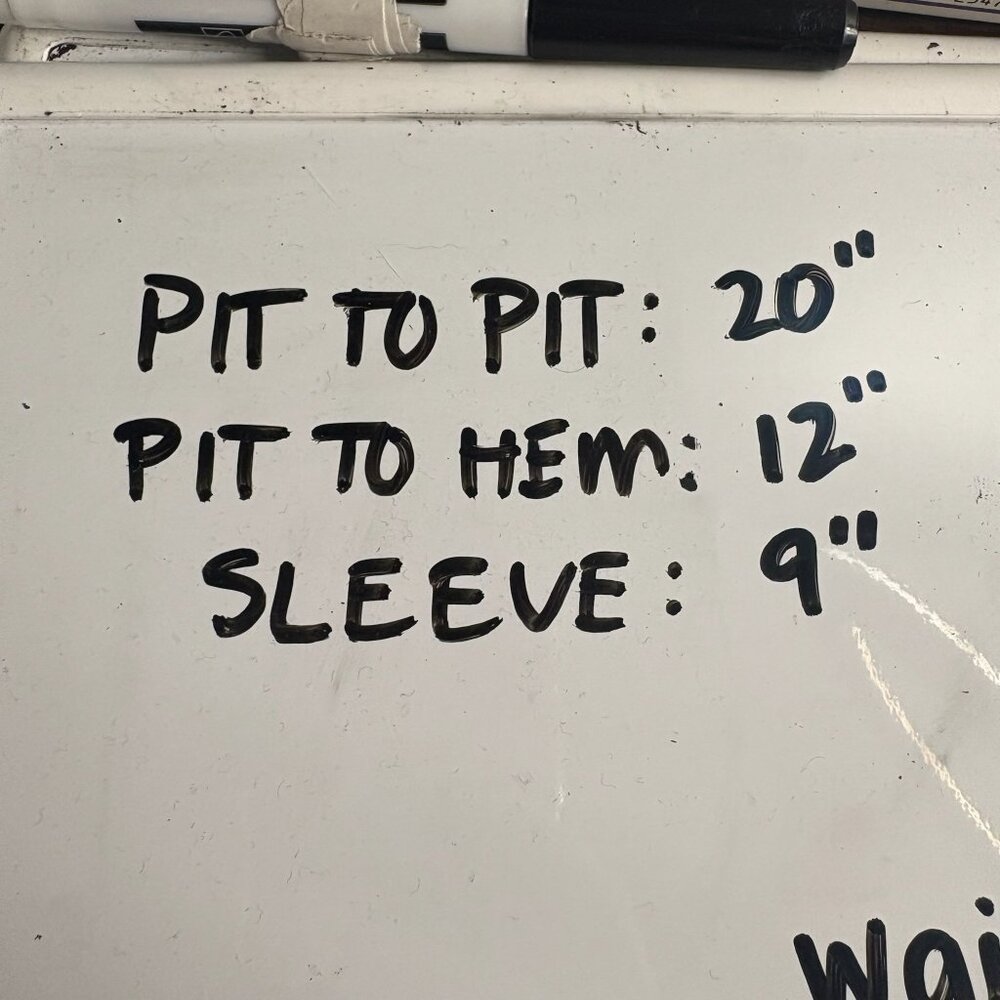 PIT TO PIT: 20"
PIT TO HEM: 12"
SLEEVE: 9"